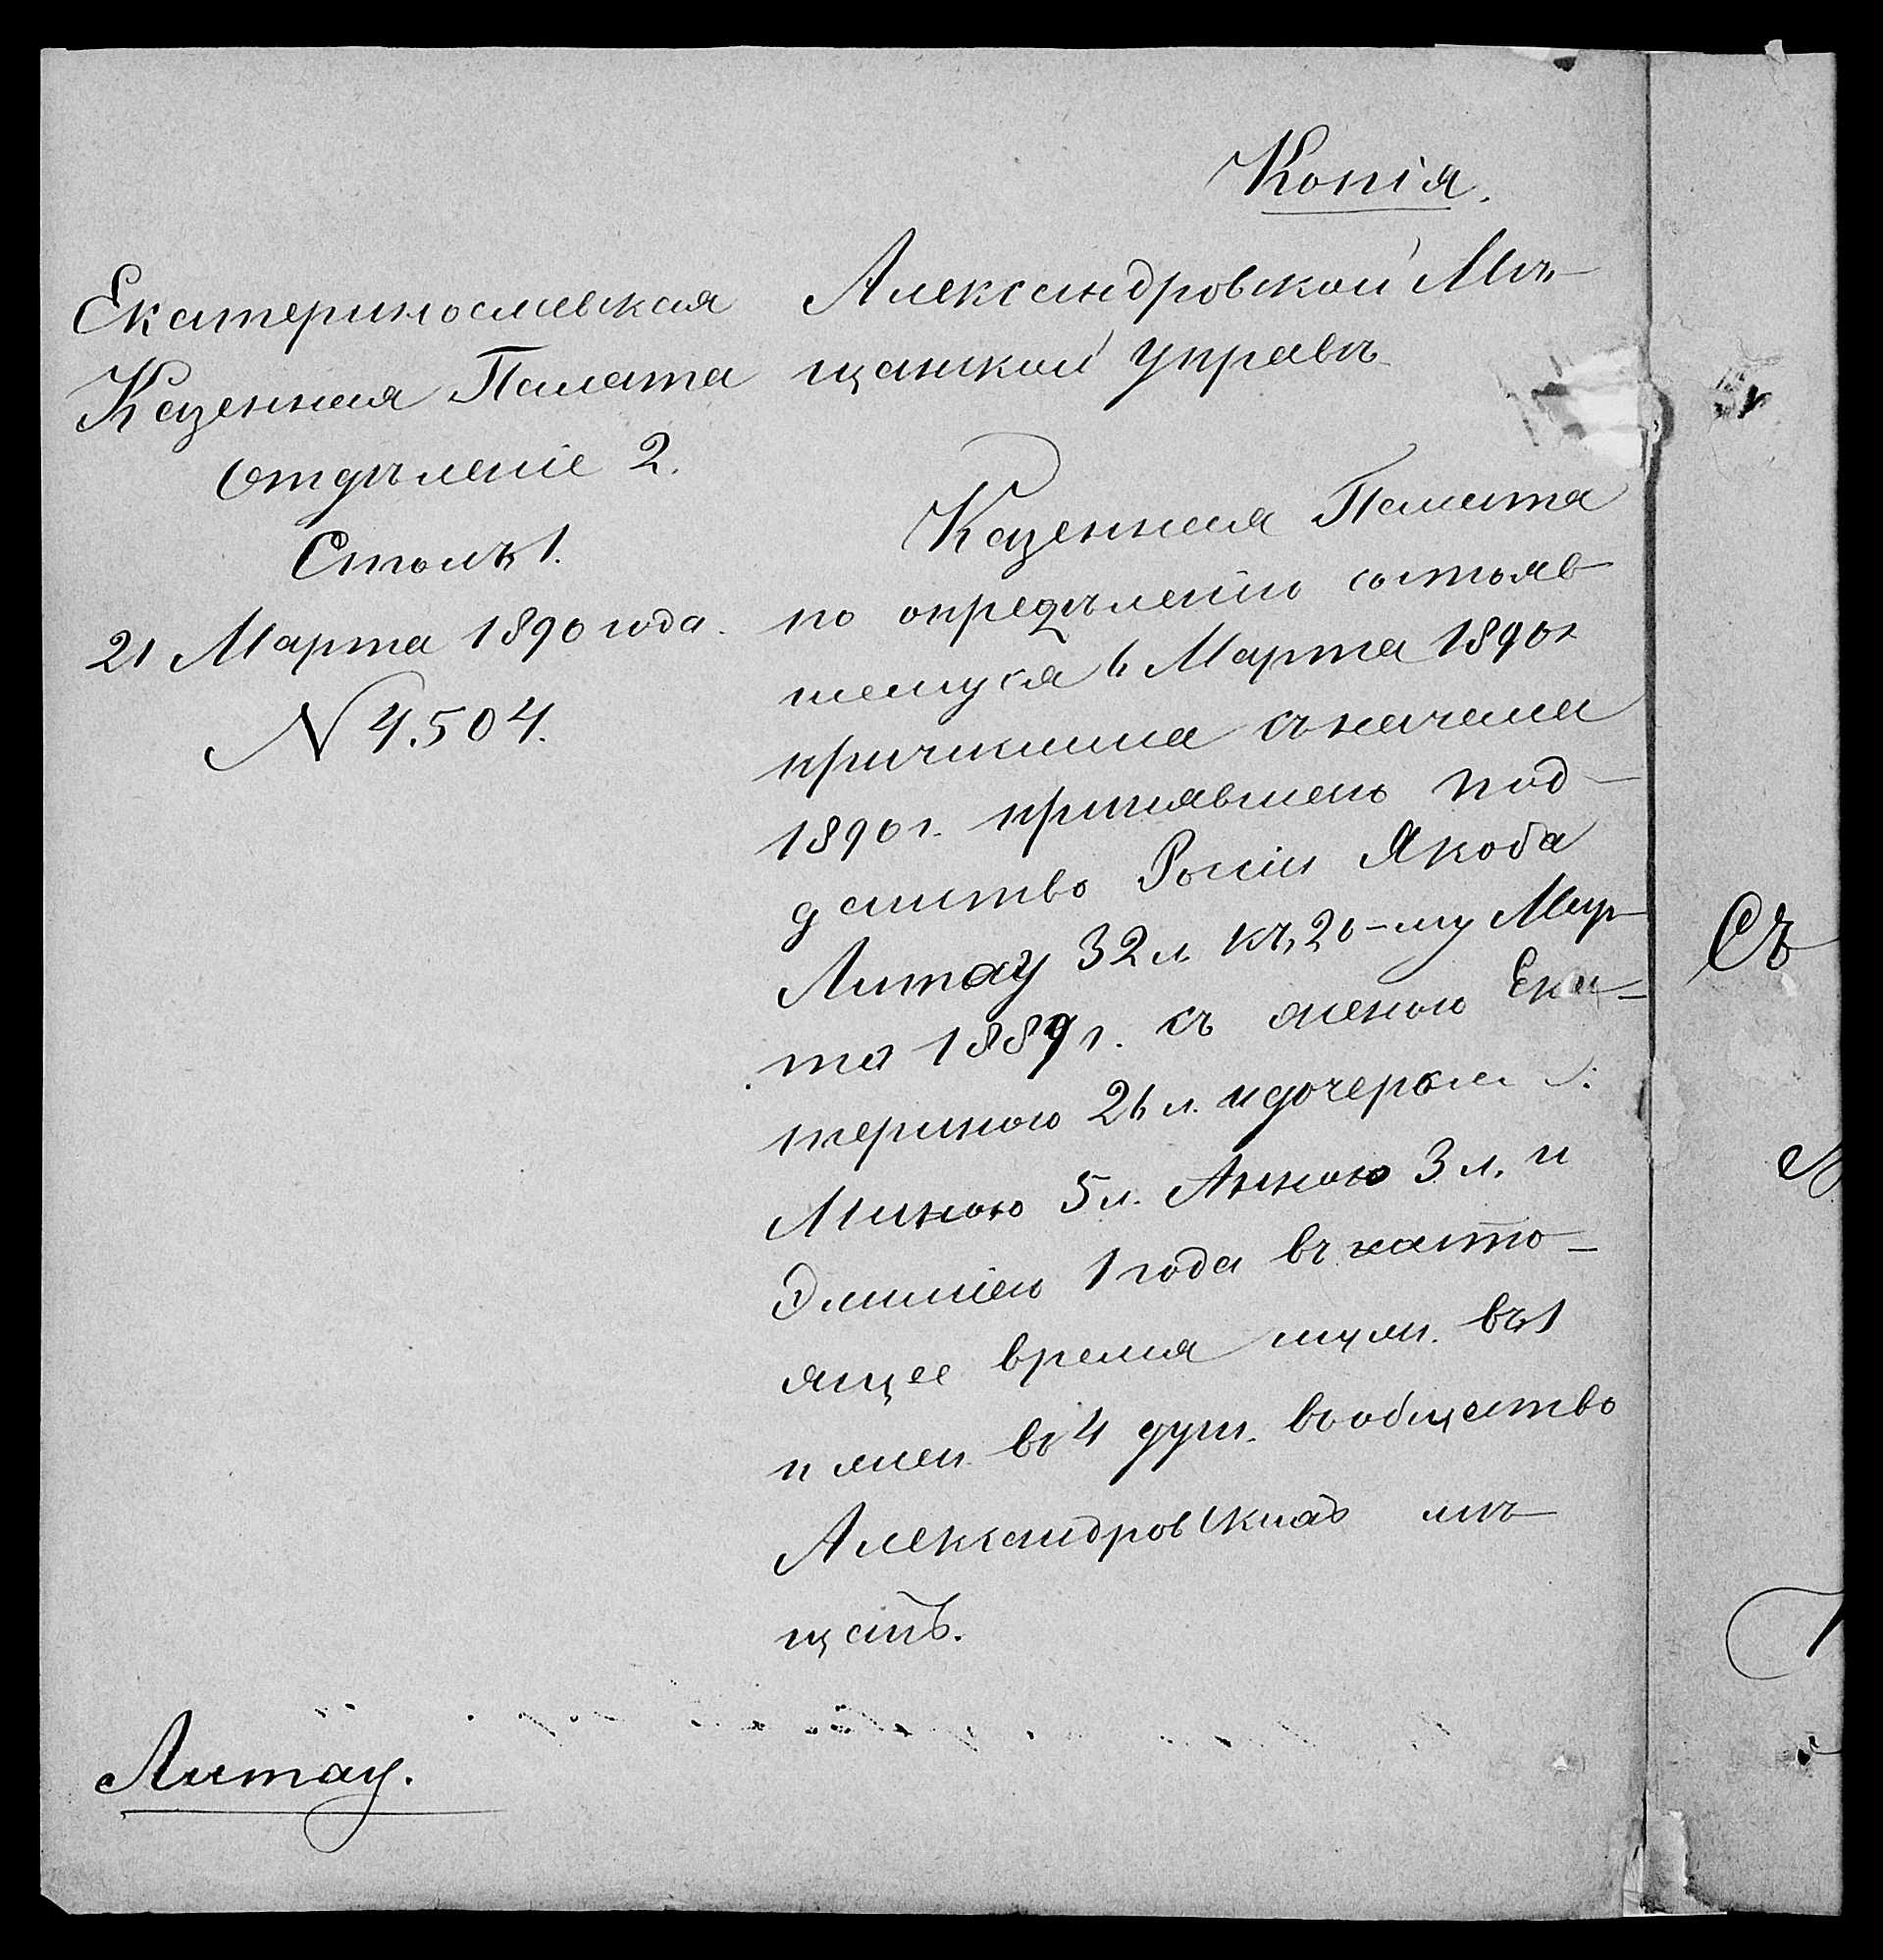 Копія.
Екатеринославская
Казенная Палата
Отдѣленіе 2.
Столъ 1.
21 Марта 1890 года.
N 4.504.
Александровской Мѣ-
щанской Управѣ
Казенная Палата
по опредѣленію состояв-
шемуся 6 Марта 1890 г.
причислила съ начала
1890 г. принявшего под-
данство Россіи Якоба
Литау 32 л. къ 20-му Мар-
та 1889 г. съ женою Ека-
териною 26 л. и дочерьми:
Миною 5 л. Анною 3 л. и
Эмиліею 1 года въ насто-
ящее время муж. въ 1
и жен. въ 4 душ. въ общество
Александровскихъ мѣ-
щанъ.
Литау.
Съ